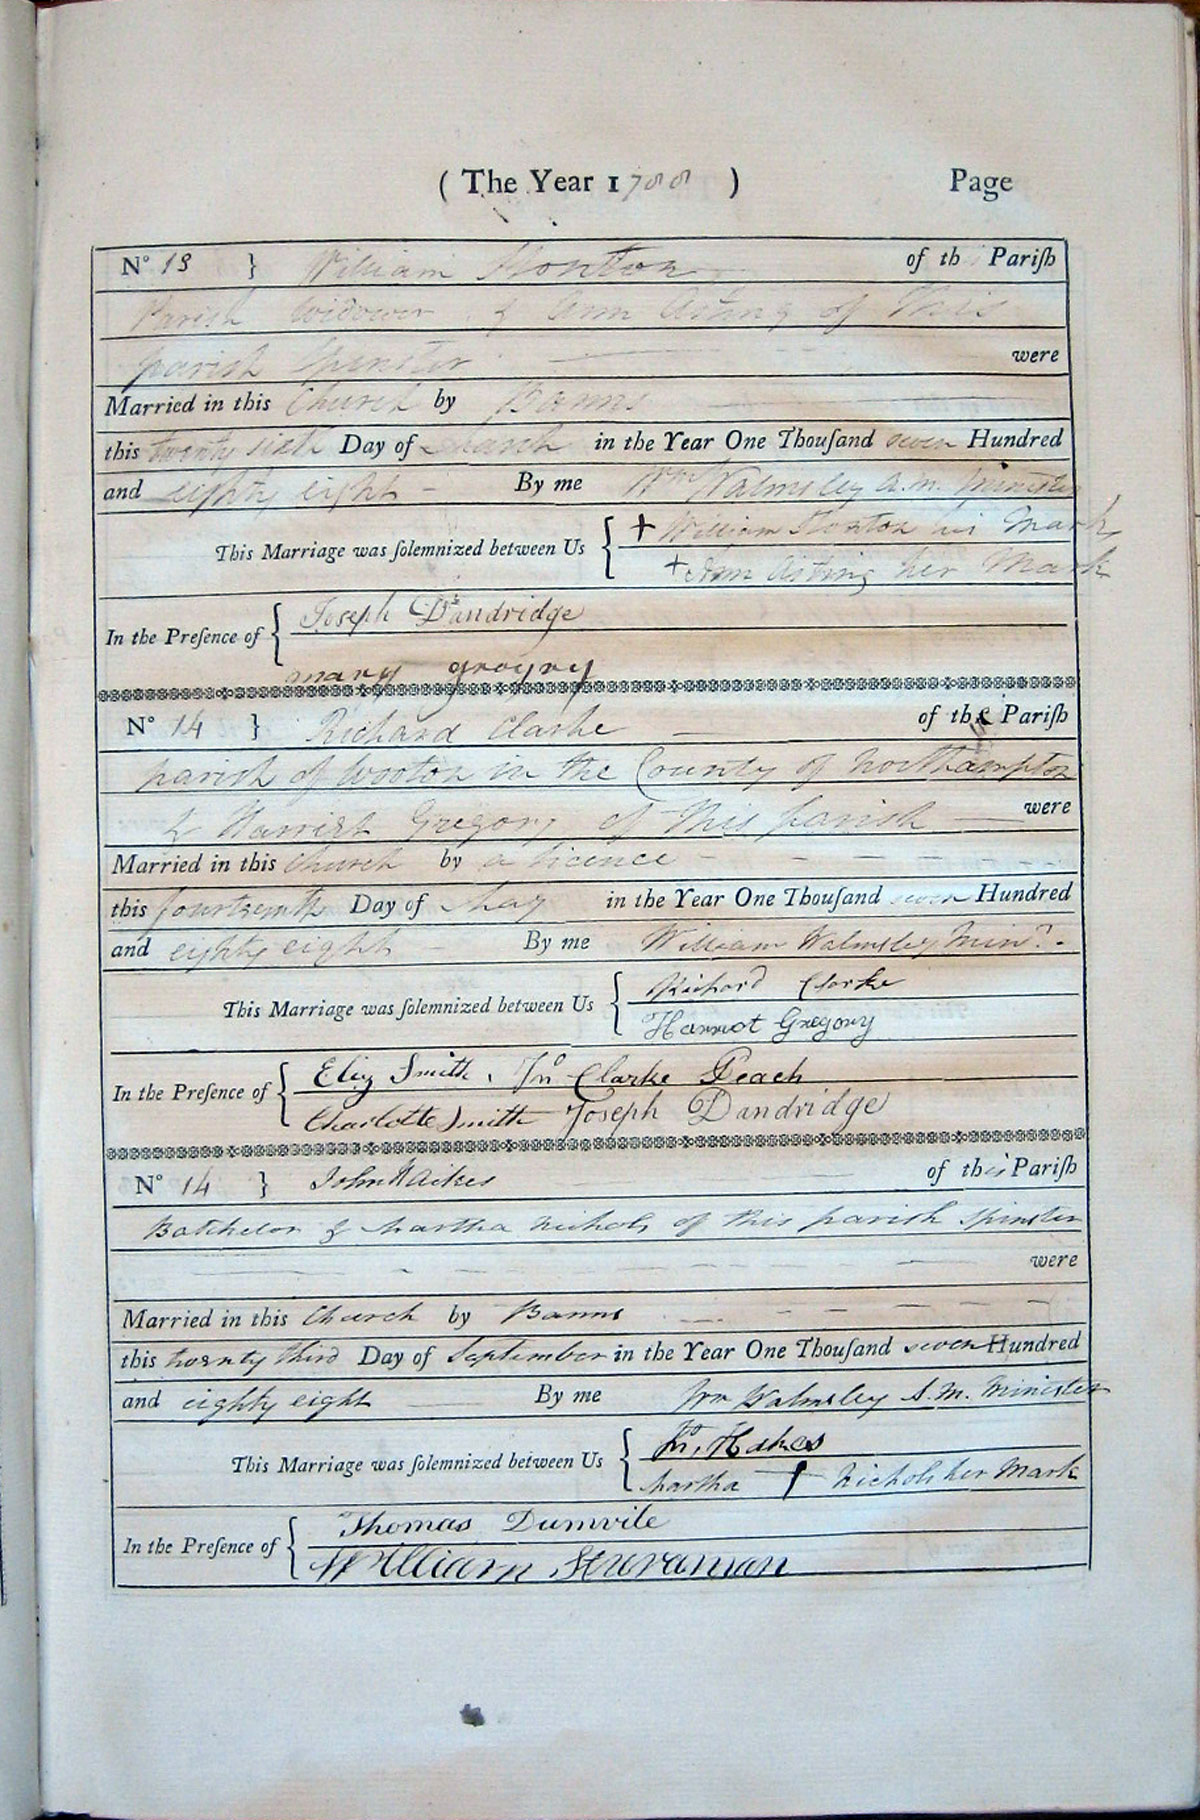 ( The Year 1788 ) Page
No 13 } William of th Pariſh
Parish widower & Ann of this
parish Spinster were
Married in this Church by Banns
this twenty sixth Day of March in the Year One Thouſand seven Hundred
and eighty eight By me Wm Walmsley A.M. Minister
This Marriage was ſolemnized between Us { + William his Mark
+ Ann her Mark
In the Preſence of { Joseph Dandridge
mary
No 14 } Richard Clarke of the Pariſh
parish of Wooton in the County of Northampton
& Harriot Gregory of this parish were
Married in this Church by a licence
this fourteenth Day of May in the Year One Thouſand seven Hundred
and eighty eight By me William Walmsley Minr.
This Marriage was ſolemnized between Us { Richard Clarke
Harriot Gregory
In the Preſence of { Eliz Smith. Jno Clarke Peach
Charlotte Smith Joseph Dandridge
No 14 } John of this Pariſh
Batchelor & Martha Nichols of this parish Spinster
were
Married in this Church by Banns
this twenty third Day of September in the Year One Thouſand seven Hundred
and eighty eight By me Wm Walmsley A.M. Minister
This Marriage was ſolemnized between Us { Jno,
Martha † Nichols her Mark
In the Preſence of { Thomas Dumvile
William